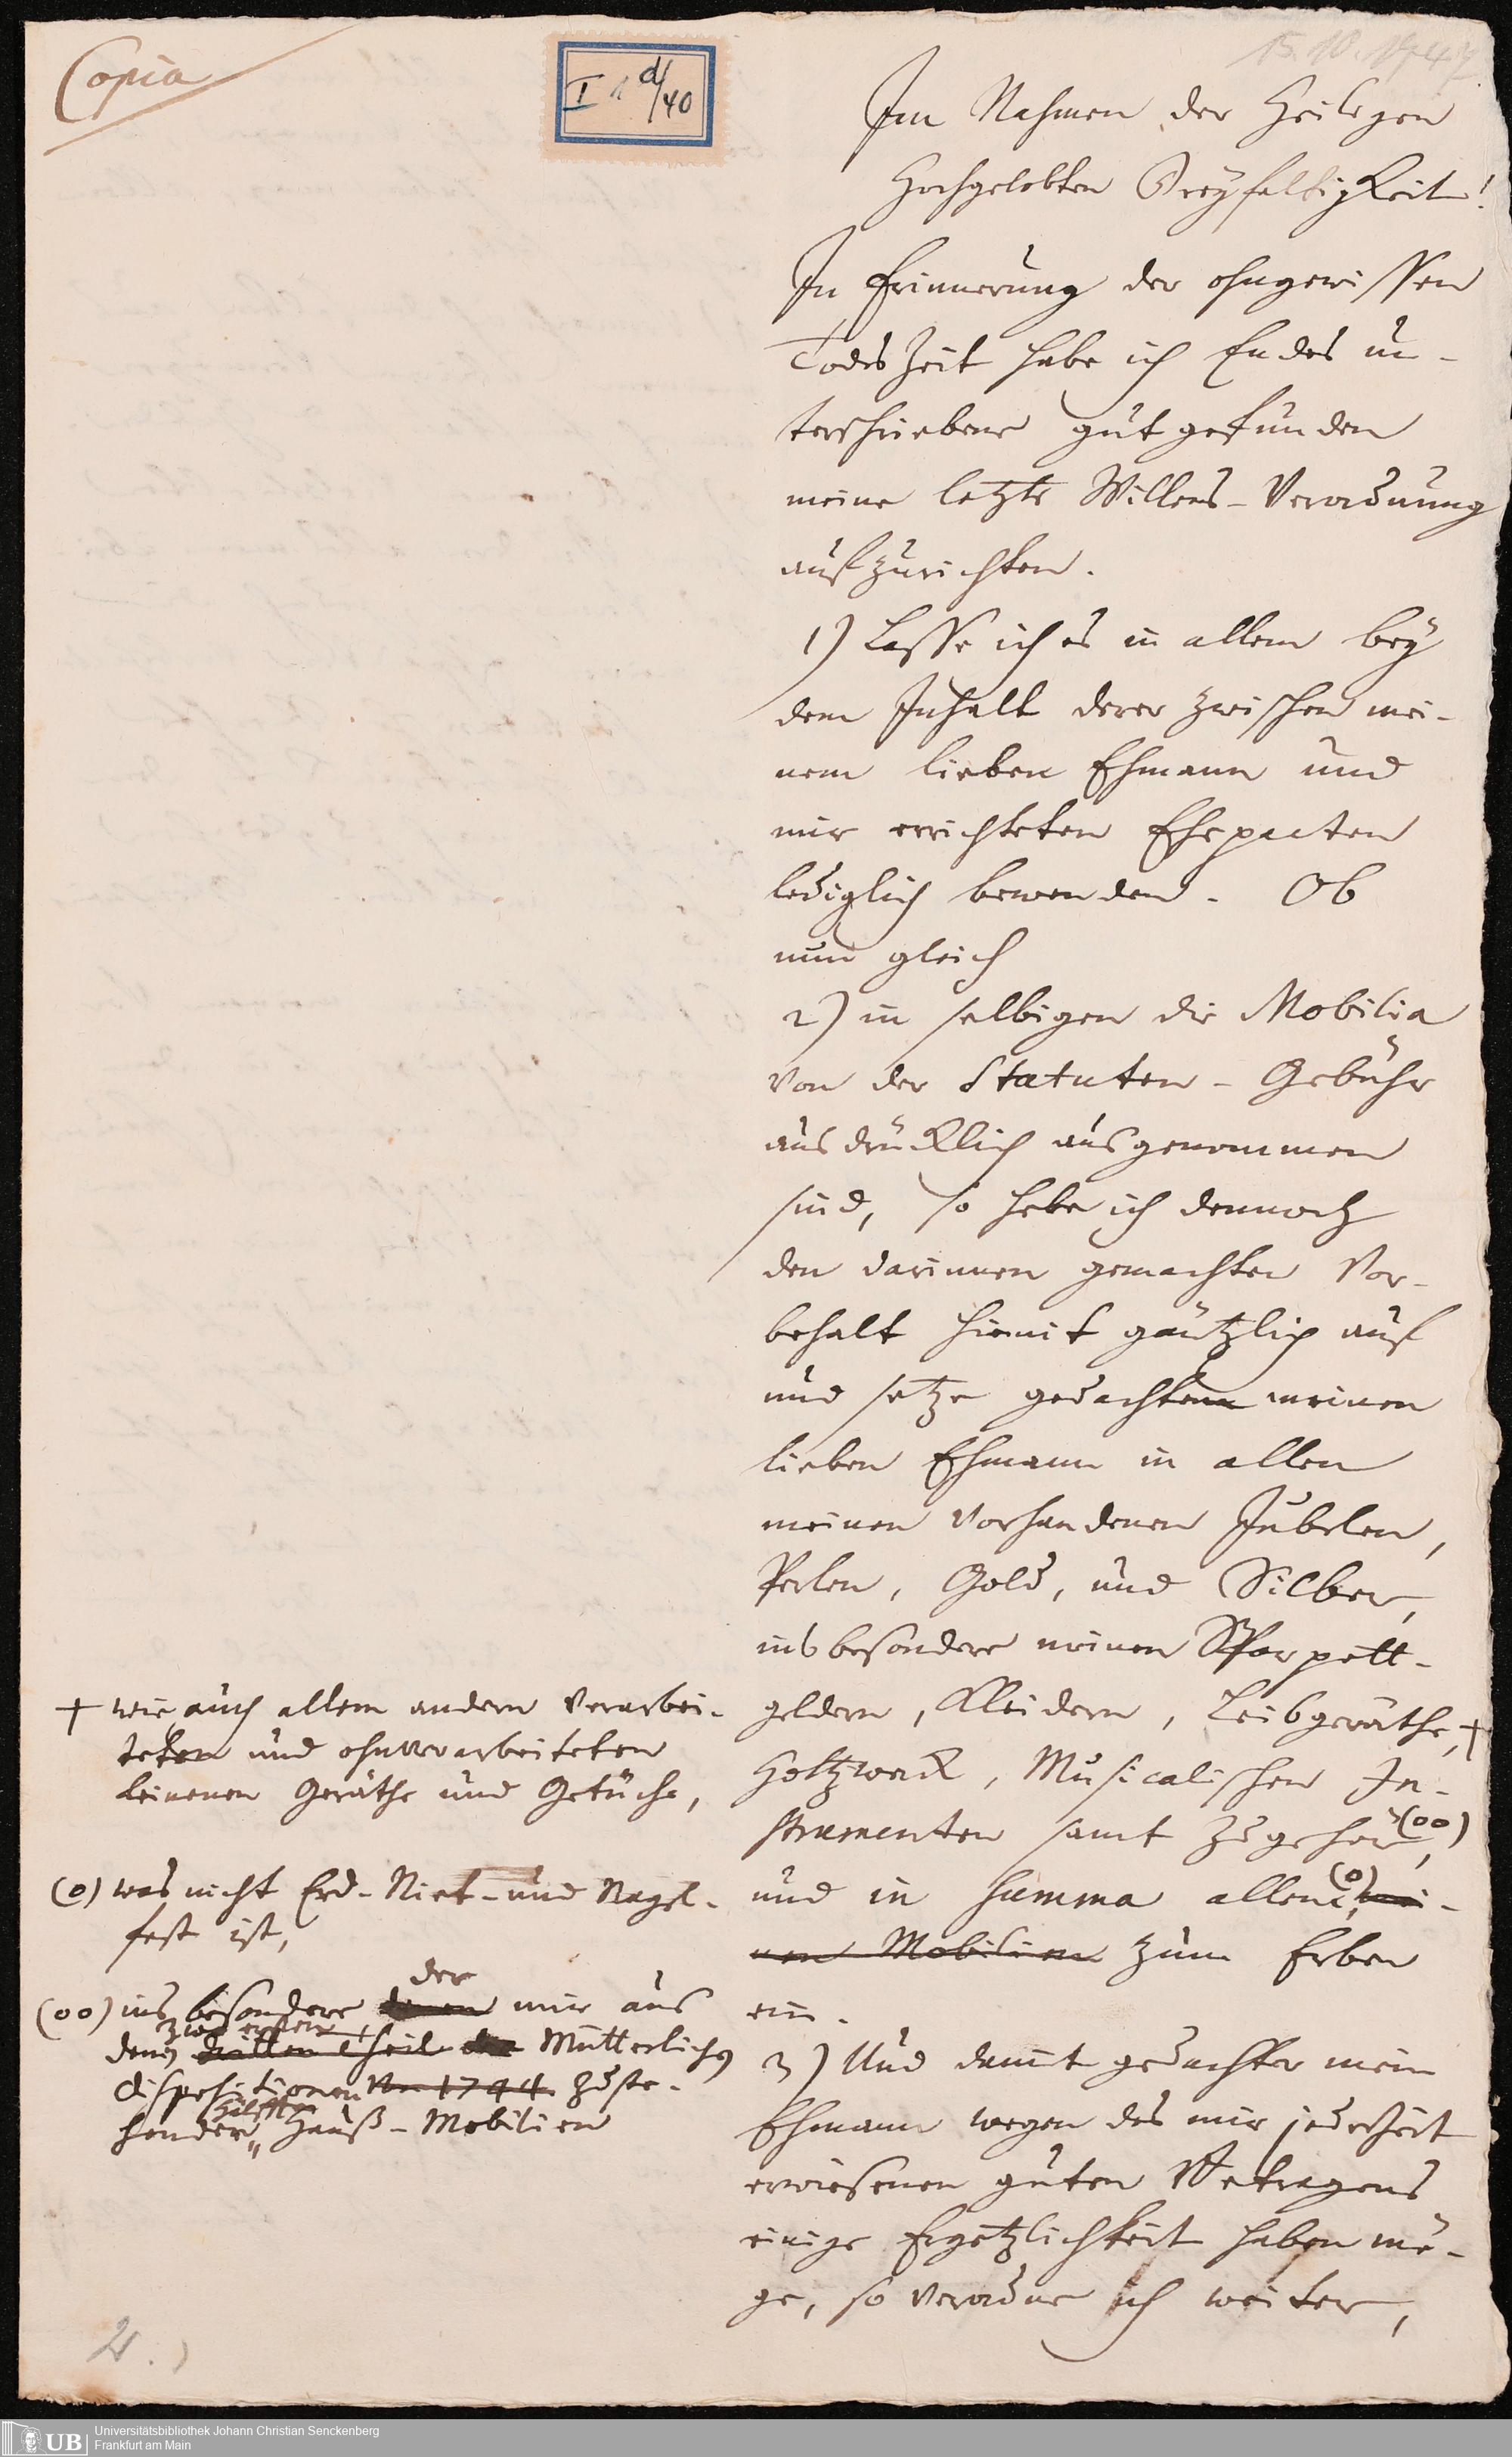 Copia
I 1 d/40
15.10.1747
Im Nahmen der Heiligen
Hochgelobten Dreyfaltigkeit!
In Erinnerung der ohngewissen
Todes Zeit habe ich Endes un-
terschriebene gut gefunden
meine letzte Willens-Verordnung
aufzurichten.
1) Lasse ich es in allem bey
dem Inhalt derer zwischen mei-
nem lieben Ehmann und
mir errichteten Ehepacten
lediglich bewenden. Ob
nun gleich
2) in selbigen die Mobilia
von der Statuten-Gebühr
ausdrücklich ausgenommen
sind, so hebe ich dennoch
den darinnen gemachten Vor-
behalt hiemit gäntzlich auf
und setze gedachten meinen
lieben Ehmann in allen
meinen vorhandenen Jubelen,
Perlen, Gold, und Silber,
ins besondere meinen
geldern, Kleidern, Leibgeräthe, +
Holtzwerck, Musicalischen In-
strumenten samt Zugehör, (oo)
und in summa allem, (o) mei-
nen Mobilien zum Erben
ein.
3) Und damit gedachter mein
Ehmann wegen des mir jederzeit
erwiesenen guten Betragens
einige Ergötzlichkeit haben mö-
ge, so verordne ich weiter,
+ wie auch allem andern verarbei-
teten und ohnverarbeiteten
leinenen Geräthe und Getüche,
(o) was nicht Erd- Niet- und Nagel-
fest ist,
(oo) ins besondere der mir aus
denen zwo ersten dritten Theil der Mütterlichen
dispositionen von 1744 zuste-
hender Hälfte Hauß-Mobilien
2.)
UB Universitätsbibliothek Johann Christian Senckenberg
Frankfurt am Main